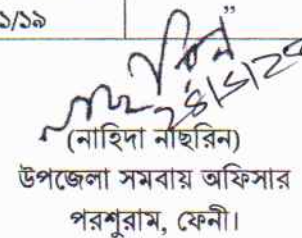 ১/১৯
”
(নাহিদা নাছরিন)
উপজেলা সমবায় অফিসার
পরশুরাম, ফেনী।